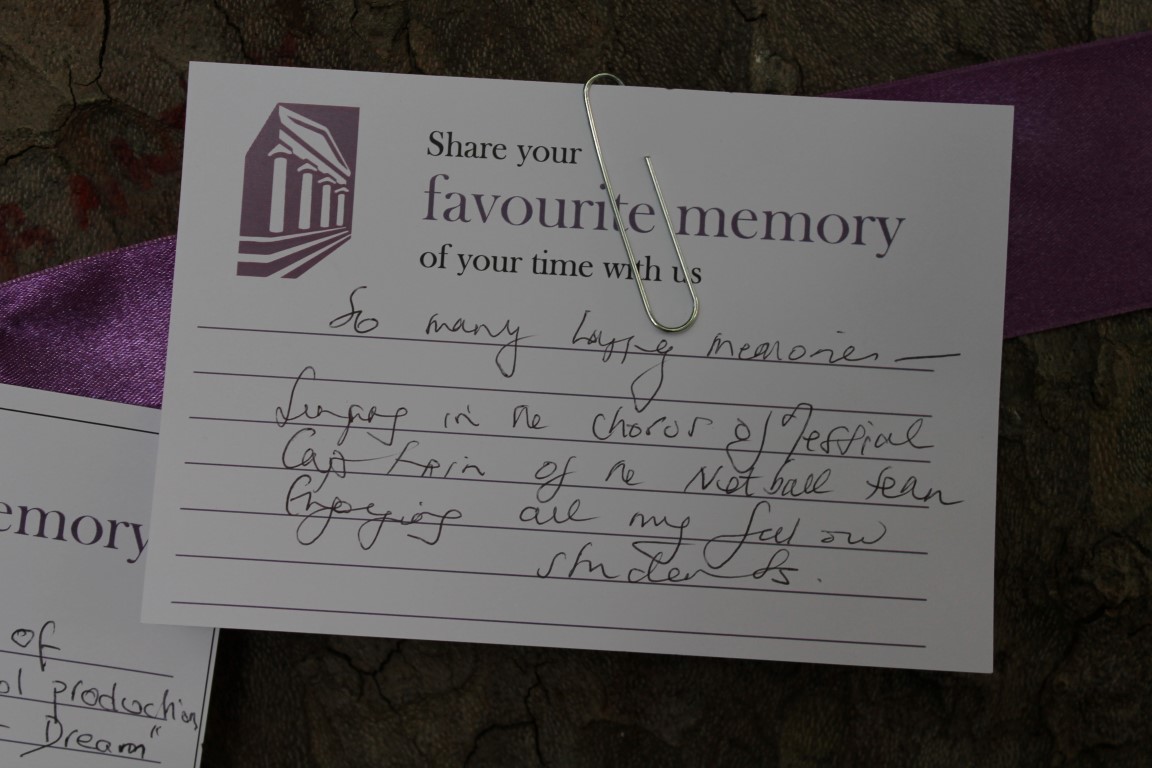 Share your
favourite memory
of your time with us
So many happy memories —
Singing in the chorus of
Captain of the Netball team
Enjoying all my fellow
students.
emory
of
ol production
- Dream"